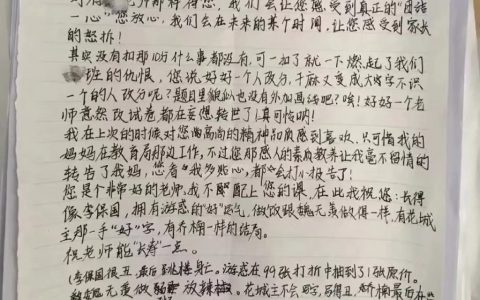 老师都特得您，我们会让您感受到真正的"团结
一心"您放心，我们会在未来的某个时间，让您感受到家长
的怒拆！
其实没有扣那10分什么事都没有，可一扣了就一下燃起了我们
班的仇恨，您说好好一个人改分，干麻又变成大字不识
一个的人改分呢？题目里貌似也没有外加画线吧？唉！好好一个老
师竟然改试卷都在妄想转世了！真可怕呐！
我在上次的时候对您高尚的精神品质感到喜欢，只可惜我的
妈妈在教育局那边工作，不过您那感人的素质教养让我毫不留情的
转告了我妈，您看"我多贴心，都会打小报告了！
您是个非常好的老师，我不配上您的课，在此我祝您：长得
像李保国，拥有游惑的"好"运气，做饭跟魏无羡做得一样，有花城
主那一手"好"字，有乔楠一样的结局。
祝老师能"长寿"一点。
(李保国很丑，最后跳楼身亡。游惑在99张打折中抽到了1张原价。
魏无羡做 放辣椒 花城主不会写